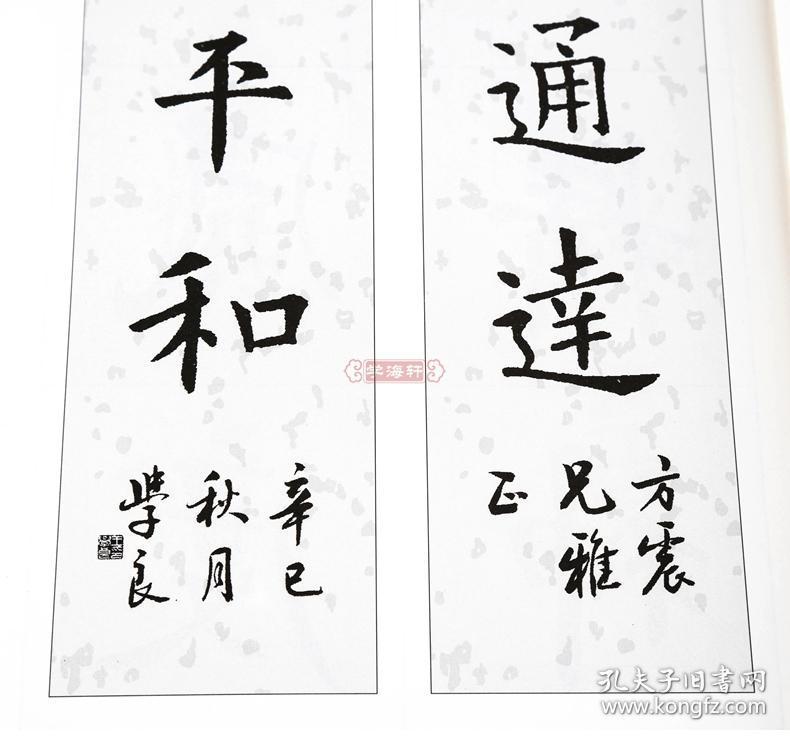 通達
方震
兄雅
正
平和
辛巳
秋月
學良
学海轩
孔夫子旧书网
www.kongfz.com